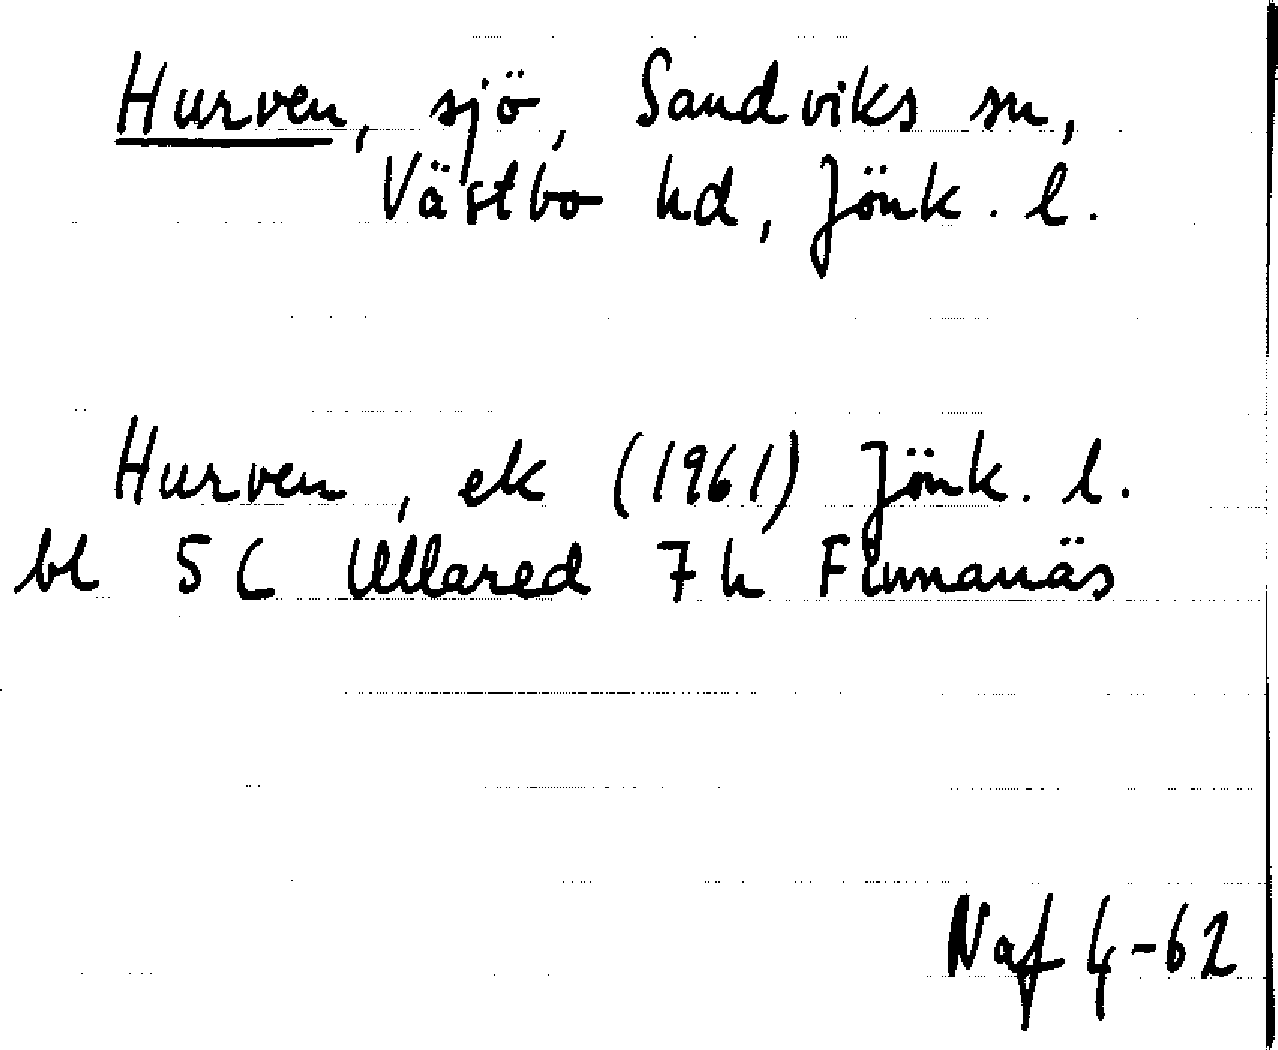 Hurven, sjö, Sandviks sn,
Västbo hd, Jönk. l.
Hurven, ek (1961) Jönk. l.
bl 5 C Ullared 7 h Finnanäs
Naf 4-62